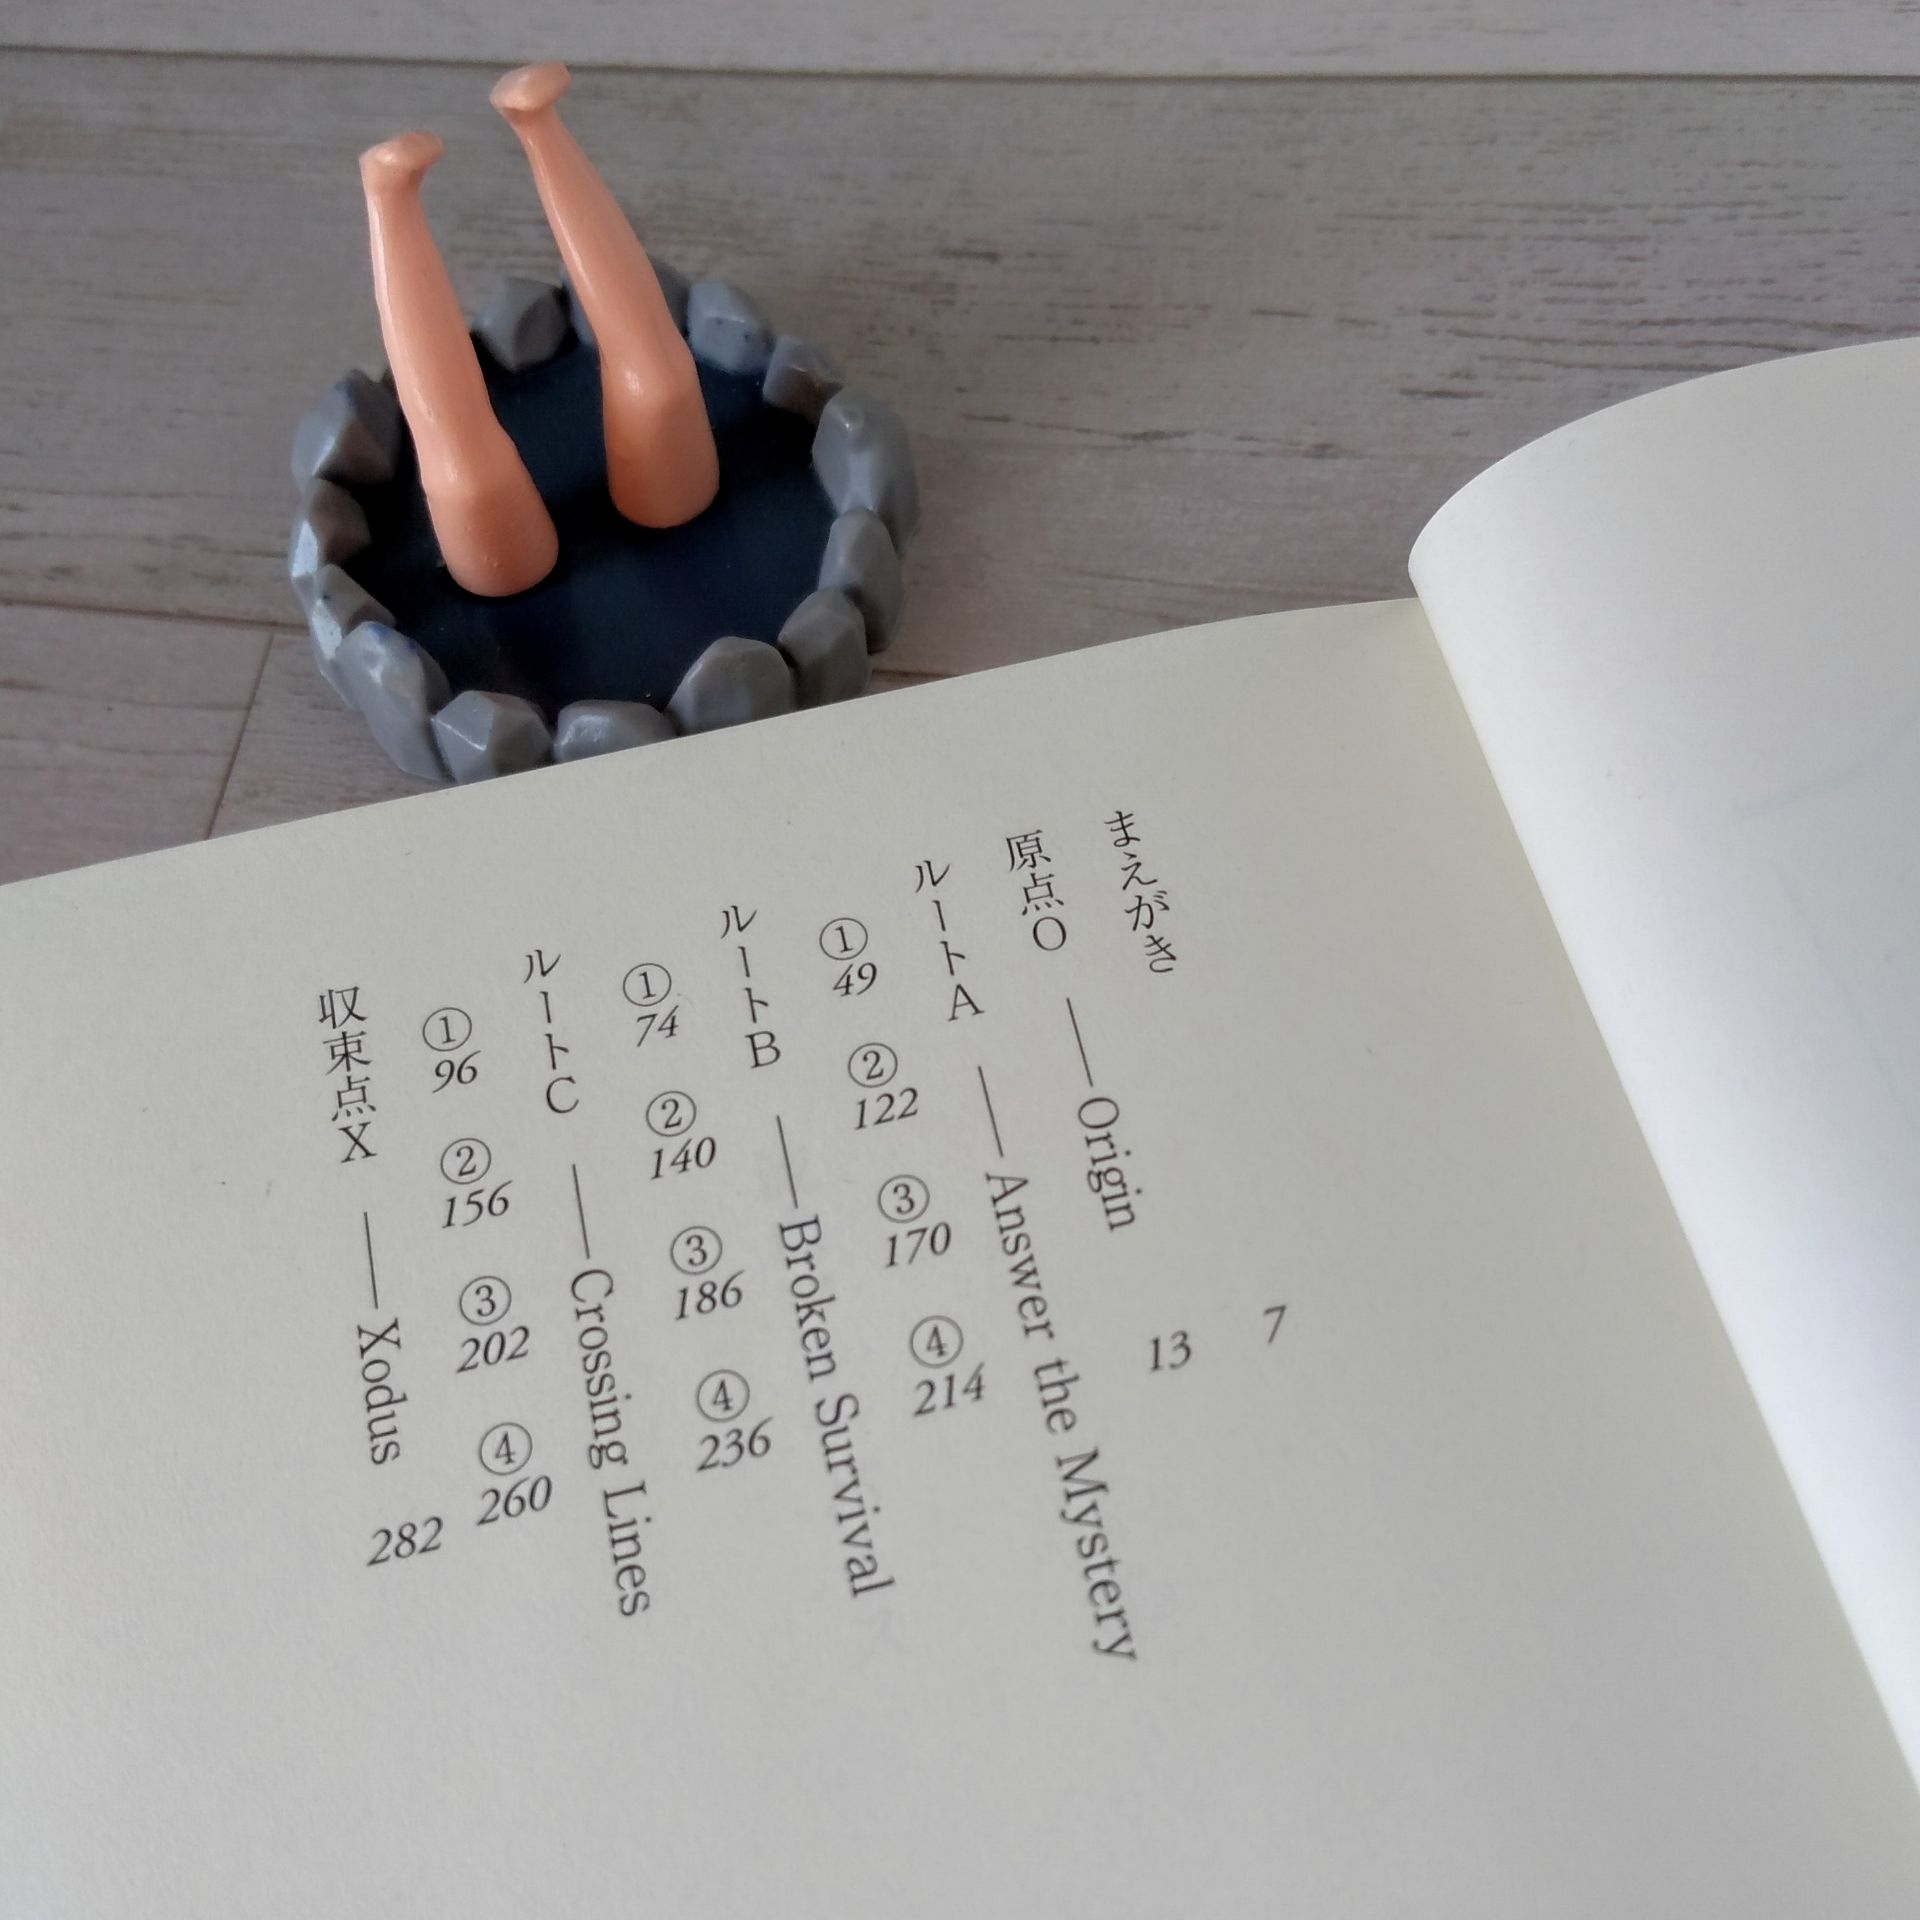 まえがき 7
原点O ――Origin 13
ルートA ――Answer the Mystery
①49 ②122 ③170 ④214
ルートB ――Broken Survival
①74 ②140 ③186 ④236
ルートC ――Crossing Lines
①96 ②156 ③202 ④260
収束点X ――Xodus 282